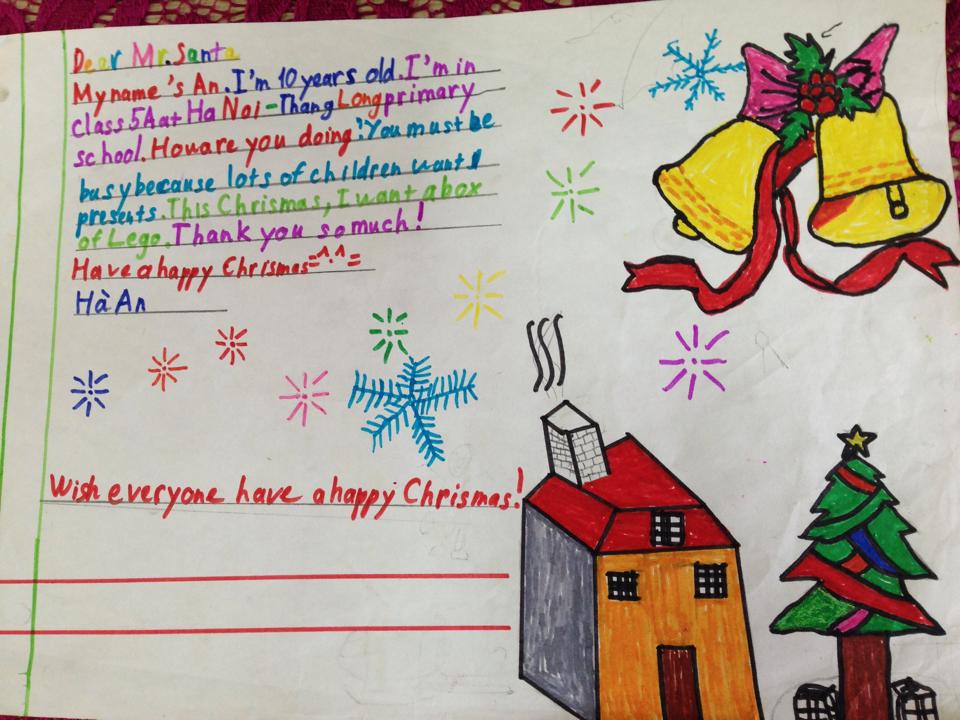 Dear Mr.Santa
My name's An.I'm 10 years old.I'm in
class 5A at Ha Noi-Thang Long primary
school.How are you doing?You must be
busy because lots of children want
presents.This Chrismas, I want a box
of Lego.Thank you so much!
Have a happy Chrismas=^.^=
Hà An
Wish everyone have a happy Chrismas!